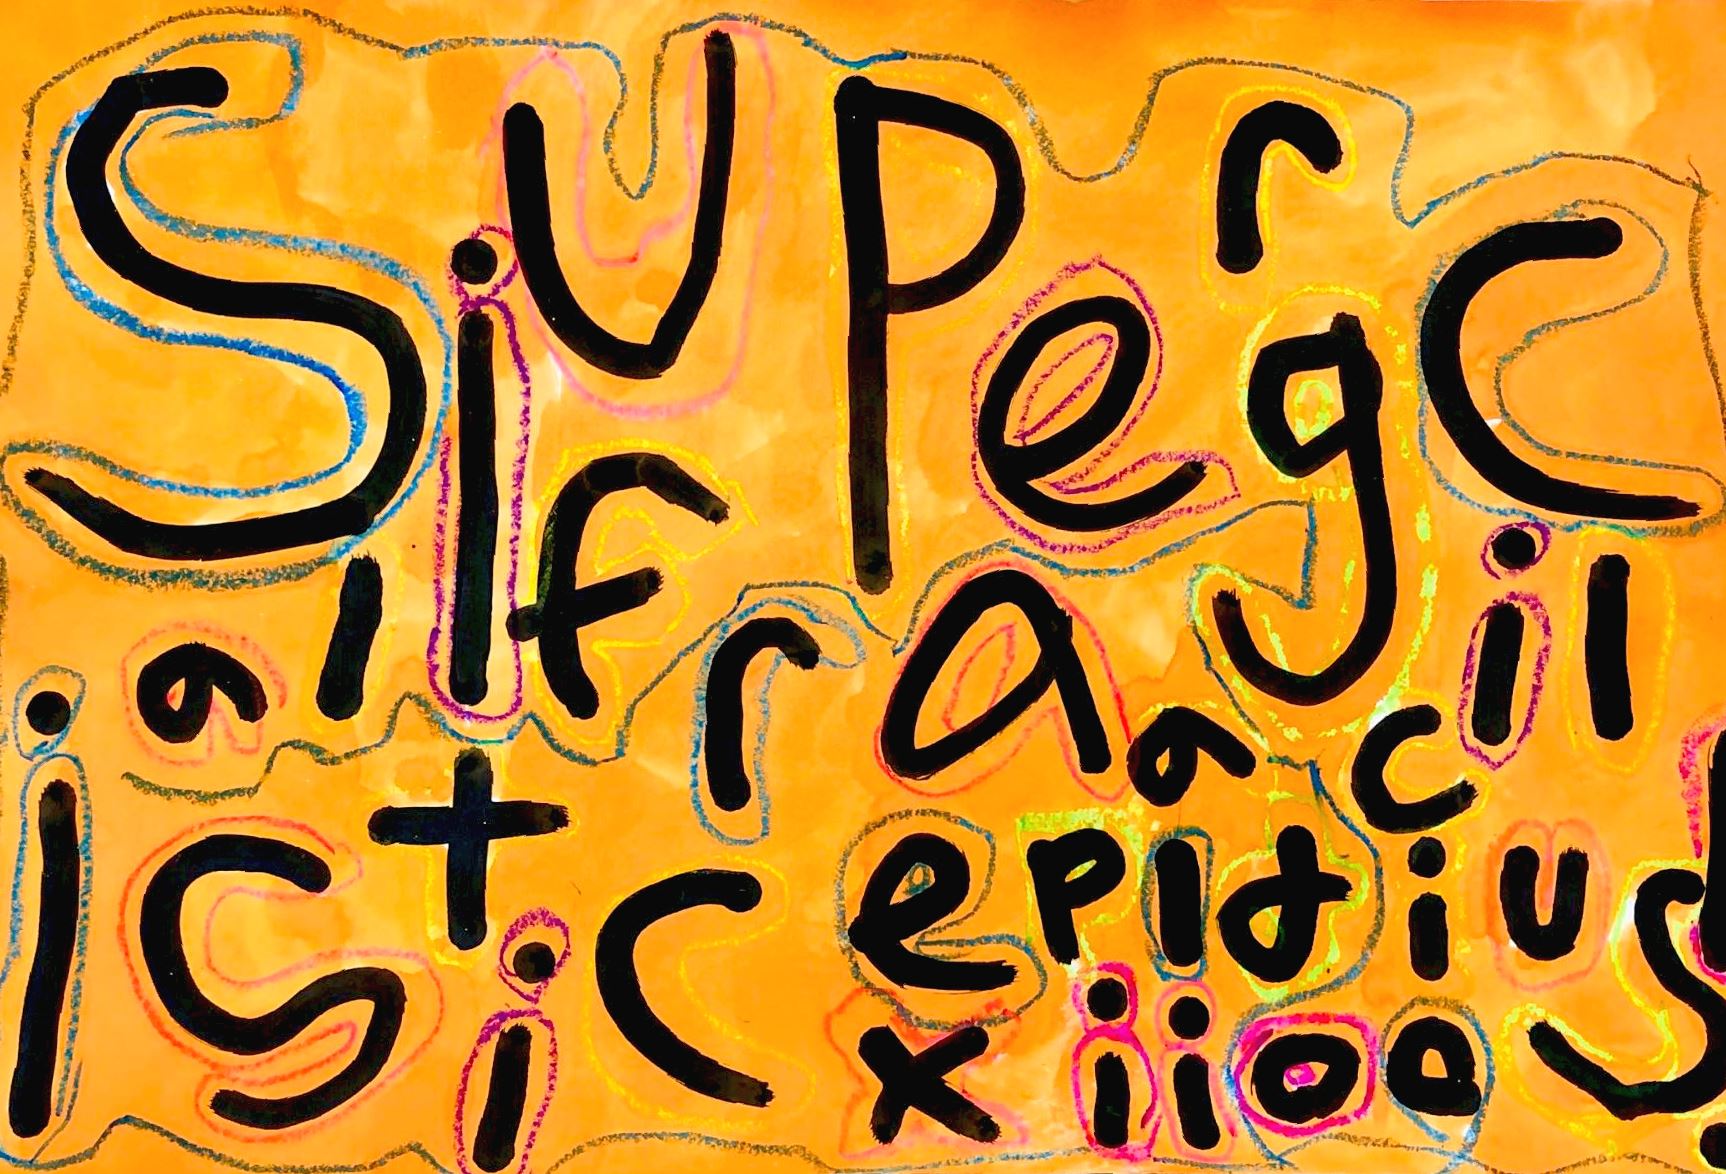 SUPerC
alifragil
isticexpialidocious